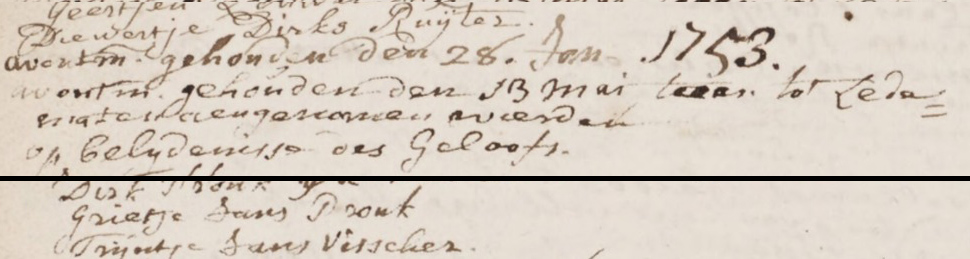 Geertjen
Diewertje Dirks Ruyter.
avontm. gehouden den 28. Jan. 1753.
avontm. gehouden den 13 Mai waar tot Lede=
maten aengenomen wierden
op belydenisse des Geloofs.
Dirk
Grietje Jans Pronk
Trijntje Jans Visscher.